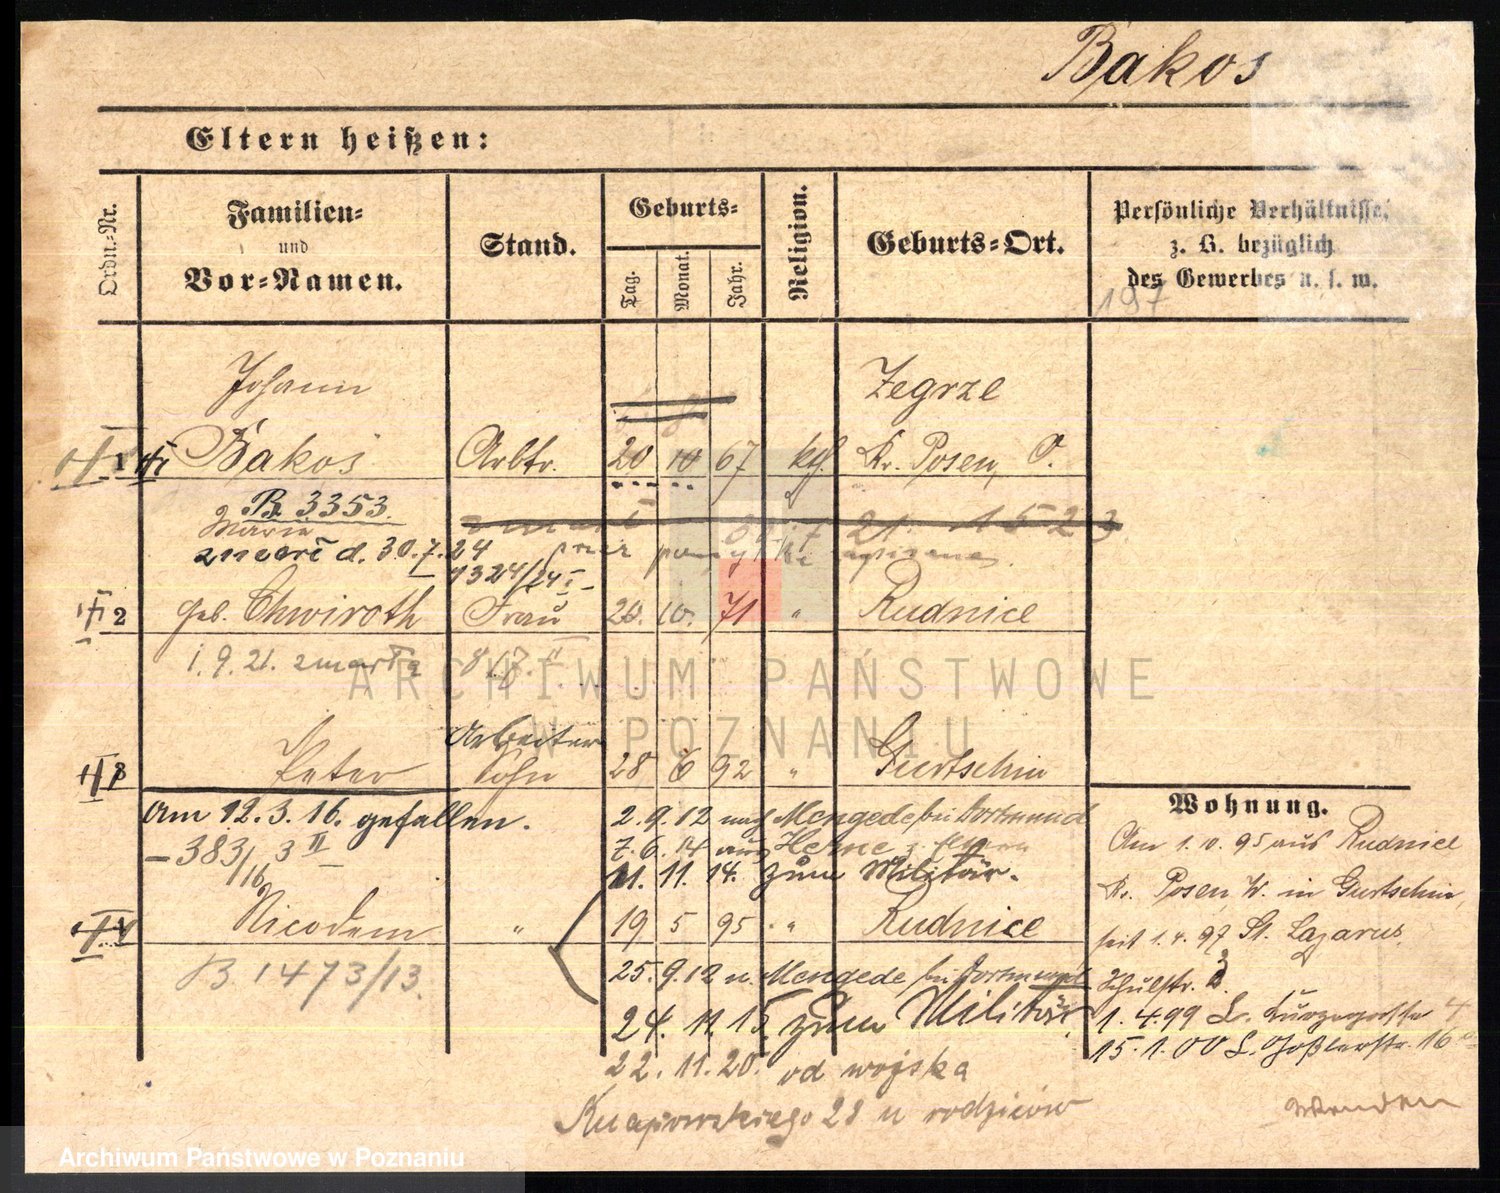 Bakos
Eltern heißen:
Ordn.-Nr.
Familien-
und
Vor-Namen.
Stand.
Geburts-
Tag.
Monat.
Jahr.
Religion.
Geburts-Ort.
Persönliche Verhältnisse,
z. B. bezüglich
des Gewerbes u. s. w.
197
Johann Zegrze
1 Bakos Arbtr. 20 10 67 kath. Kr. Posen, O.
B 3353
Marie
zmarł d. 30.7.24
1324/24 I
2 geb. Chwiroth Frau 20. 10. 71 " Rudnice
1.9.21. zmarła
Arbeiter
3 Peter Sohn 28 6 92 " Gurtschin
Am 12.3.16. gefallen. 2.9.12 nach Mengede bei Dortmund
383/16 3 II 7.6.14 aus Herne z. Eltern
11.11.14. zum Militär.
4 Nicodem " 19 5 95 " Rudnice
B 1473/13. 25.9.12 n. Mengede bei Dortmund
24.11.15. zum Militär.
22.11.20. od wojska
Knapowskiego 28 u rodziców
Wohnung.
Am 1.10.95 aus Rudnice
Kr. Posen W. in Gurtschin,
seit 1.4.97 St. Lazarus,
Schulstr. 3.
1.4.99 L. Kurzegasse 4
15.1.00 L. Goßlerstr. 16
wenden
ARCHIWUM PAŃSTWOWE
W POZNANIU
Archiwum Państwowe w Poznaniu